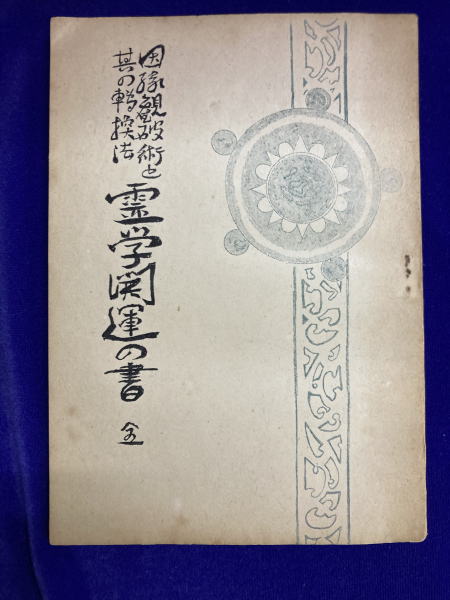 因縁観破術と
其の轉換法
霊学開運の書
全